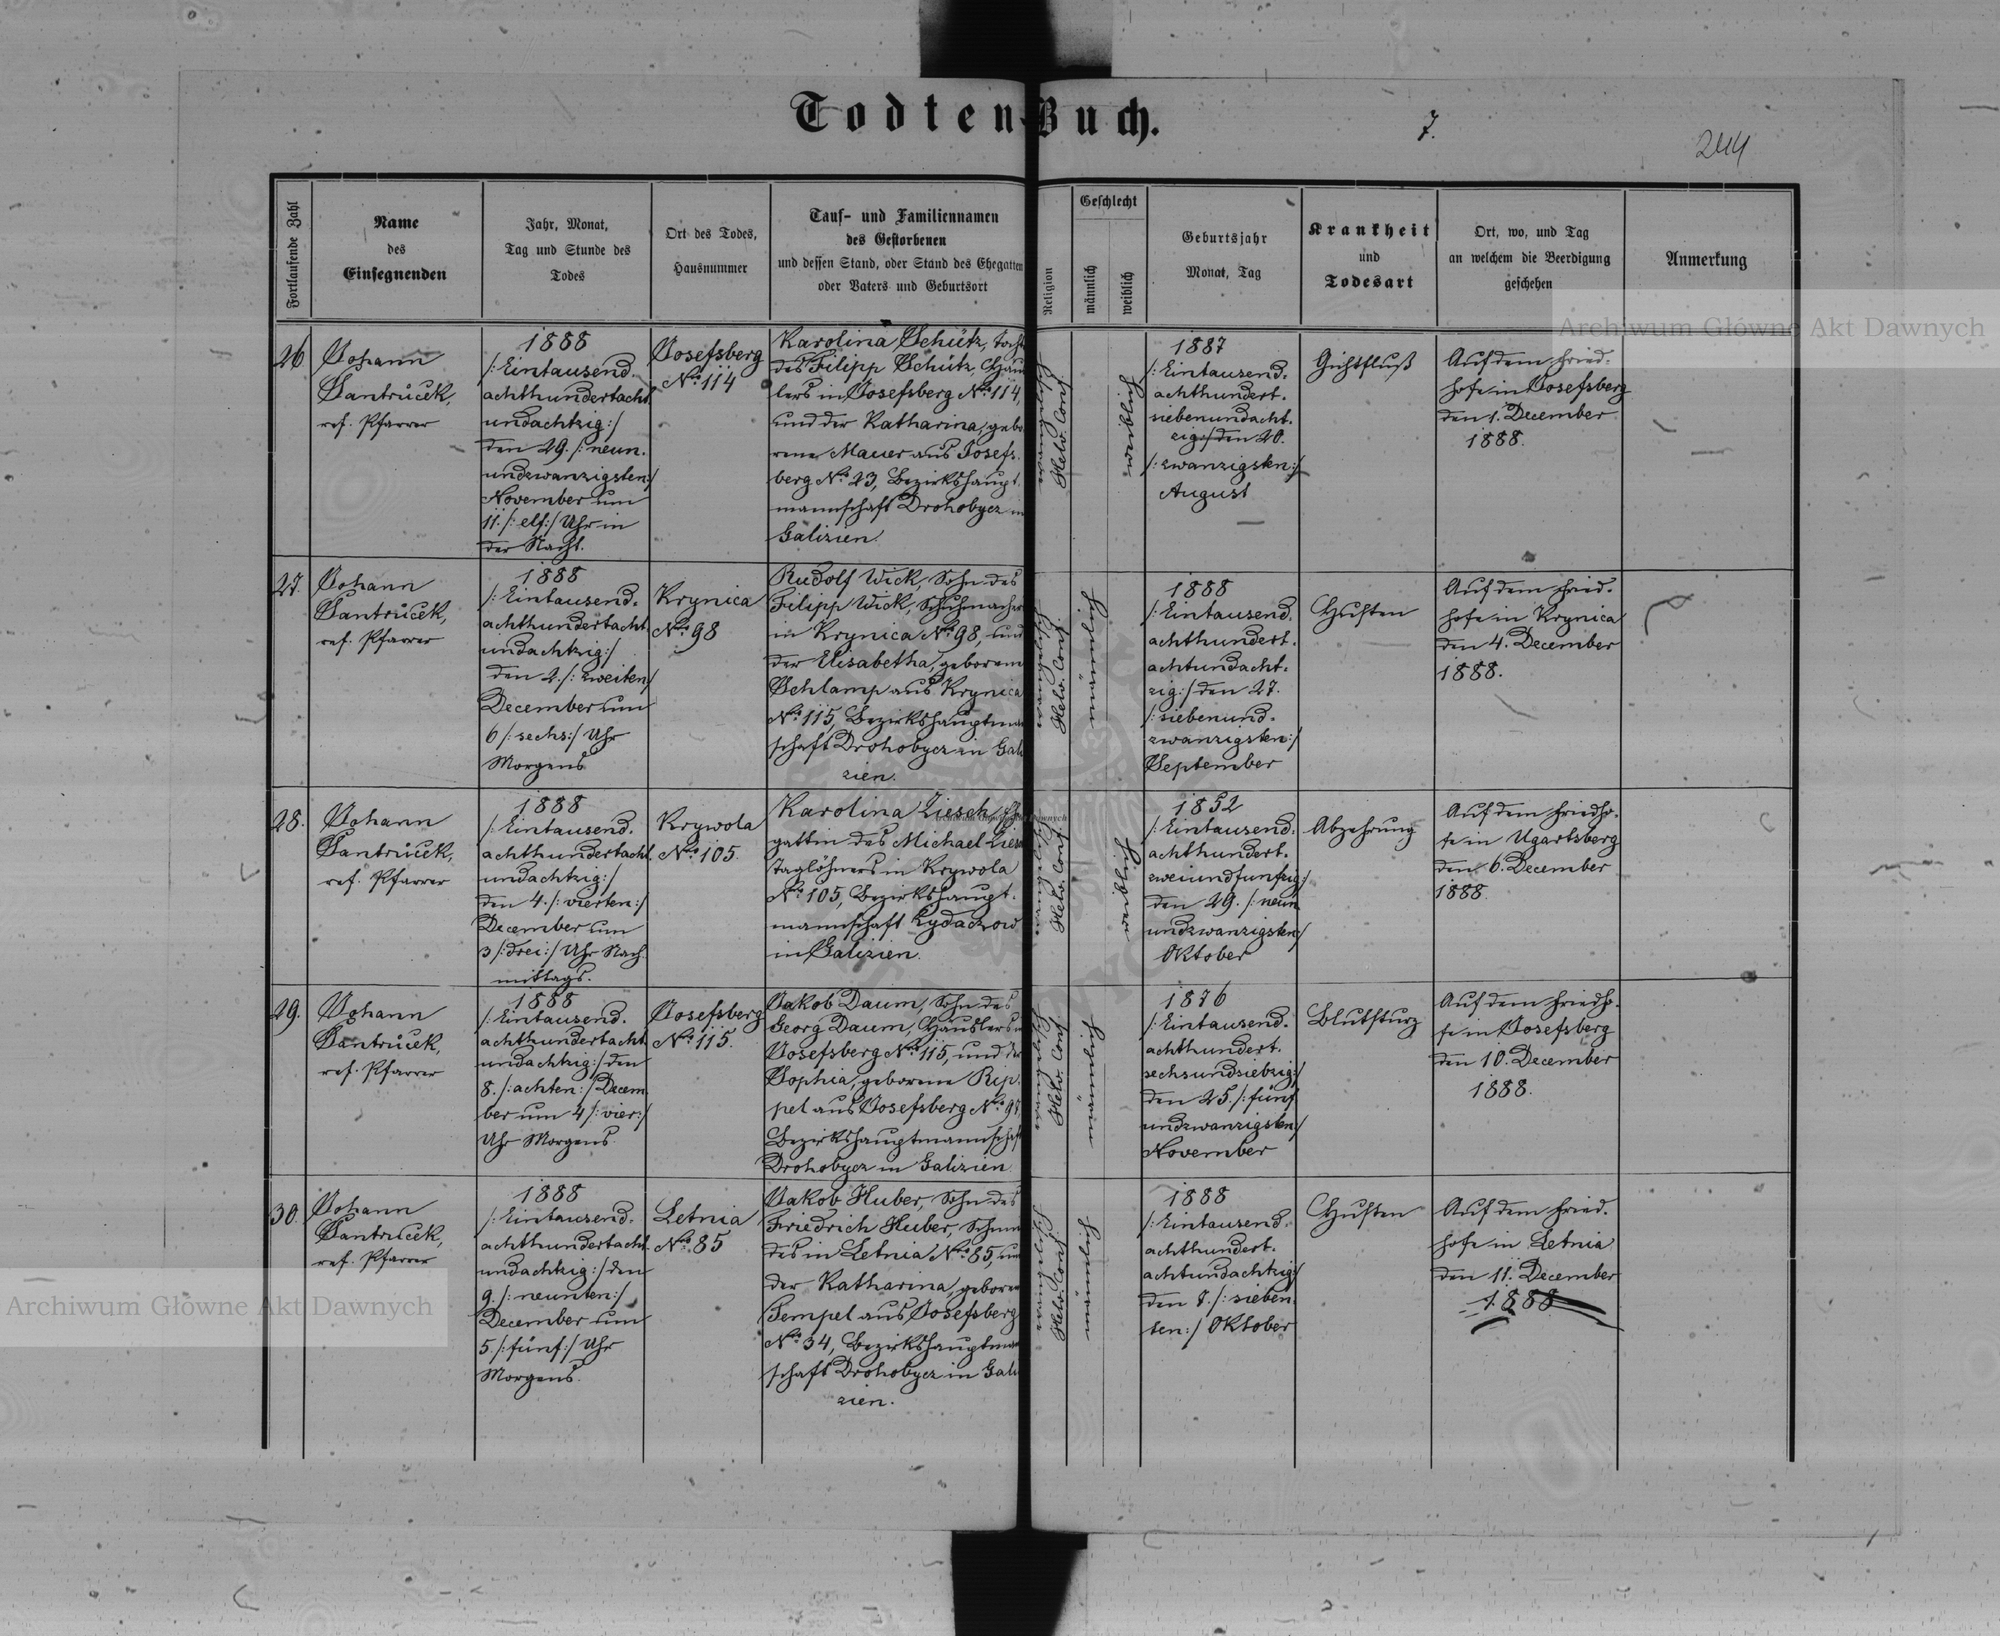 Todten-Buch.
7.
244
Fortlaufende Zahl
Name
des
Einsegnenden
Jahr, Monat,
Tag und Stunde des
Todes
Ort des Todes,
Hausnummer
Tauf- und Familiennamen
des Gestorbenen
und dessen Stand, oder Stand des Ehegatten
oder Vaters und Geburtsort
Religion
Geschlecht
männlich
weiblich
Geburtsjahr
Monat, Tag
Krankheit
und
Todesart
Ort, wo, und Tag
an welchem die Beerdigung
geschehen
Anmerkung
Archiwum Główne Akt Dawnych
26
Johann
Santrůček,
ref. Pfarrer
1888
/: Eintausend.
achthundertacht
undachtzig :/
den 29. /: neun.
undzwanzigsten :/
November um
11. /: elf :/ Uhr in
der Nacht.
Josefsberg
No 114
Karolina Schütz, Toch
des Filipp Schütz, Häus
lers in Josefsberg No 114,
und der Katharina, gebo
rene Mauer aus Josefs.
berg No 23, Bezirkshaupt.
mannschaft Drohobycz in
Galizien.
evangelisch
Helv. Conf.
weiblich
1887
/: Eintausend.
achthundert.
siebenundacht.
zig :/ den 20.
/: zwanzigsten :/
August
Gichtfluß
Auf dem Fried.
hofe in Josefsberg
den 1. December
1888.
27.
Johann
Santrůček,
ref. Pfarrer
1888
/: Eintausend.
achthundertacht
undachtzig :/
den 2. /: zweiten :/
December um
6 /: sechs :/ Uhr
Morgens
Krynica
No 98
Rudolf Wick, Sohn des
Filipp Wick, Schuhmacher
in Krynica No 98, und
der Elisabetha, geborene
Schlamp aus Krynica
No 115, Bezirkshauptman
schaft Drohobycz in Gali
zien.
evangelisch
Helv. Conf.
männlich
1888
/: Eintausend.
achthundert.
achtundacht.
zig :/ den 27.
/: siebenund.
zwanzigsten :/
September
Husten
Auf dem Fried.
hofe in Krynica
den 4. December
1888.
28.
Johann
Santrůček,
ref. Pfarrer
1888
/: Eintausend.
achthundertacht
undachtzig :/
den 4. /: vierten :/
December um
3 /: drei :/ Uhr Nach.
mittags.
Krywola
No 105.
Karolina Ziesch, Ehe
gattin des Michael Ziesch
Taglöhners in Krywola
No 105, Bezirkshaupt.
mannschaft Zydaczow
in Galizien.
evangelisch
Helv. Conf.
weiblich
1852
/: Eintausend.
achthundert.
zweiundfunfzig :/
den 29. /: neun
undzwanzigsten :/
Oktober
Abzehrung
Auf dem Friedho.
fe in Ugartsberg
den 6. December
1888.
29.
Johann
Santrůček,
ref. Pfarrer
1888
/: Eintausend.
achthundertacht
undachtzig :/ den
8. /: achten :/ Decem.
ber um 4 /: vier :/
Uhr Morgens
Josefsberg
No 115.
Jakob Daum, Sohn des
Georg Daum, Häuslers in
Josefsberg No 115, und der
Sophia, geborene Rip.
pel aus Josefsberg No 97
Bezirkshauptmannschaft
Drohobycz in Galizien.
evangelisch
Helv. Conf.
männlich
1876
/: Eintausend.
achthundert.
sechsundsiebzig :/
den 25. /: fünf
undzwanzigsten :/
November
Blutsturz
Auf dem Friedho.
fe in Josefsberg
den 10. December
1888.
30.
Johann
Santrůček,
ref. Pfarrer
1888
/: Eintausend.
achthundertacht.
undachtzig :/ den
9. /: neunten :/
December um
5. /: fünf :/ Uhr
Morgens.
Letnia
No 85
Jakob Huber, Sohn des
Friedrich Huber, Schmie
des in Letnia No 85, und
der Katharina, geborene
Tempel aus Josefsberg
No 34, Bezirkshauptman
schaft Drohobycz in Gali
zien.
evangelisch
Helv. Conf.
männlich
1888
/: Eintausend.
achthundert.
achtundachtzig :/
den 7. /: sieben.
ten :/ Oktober
Husten
Auf dem Fried.
hofe in Letnia
den 11. December
1888
Archiwum Główne Akt Dawnych